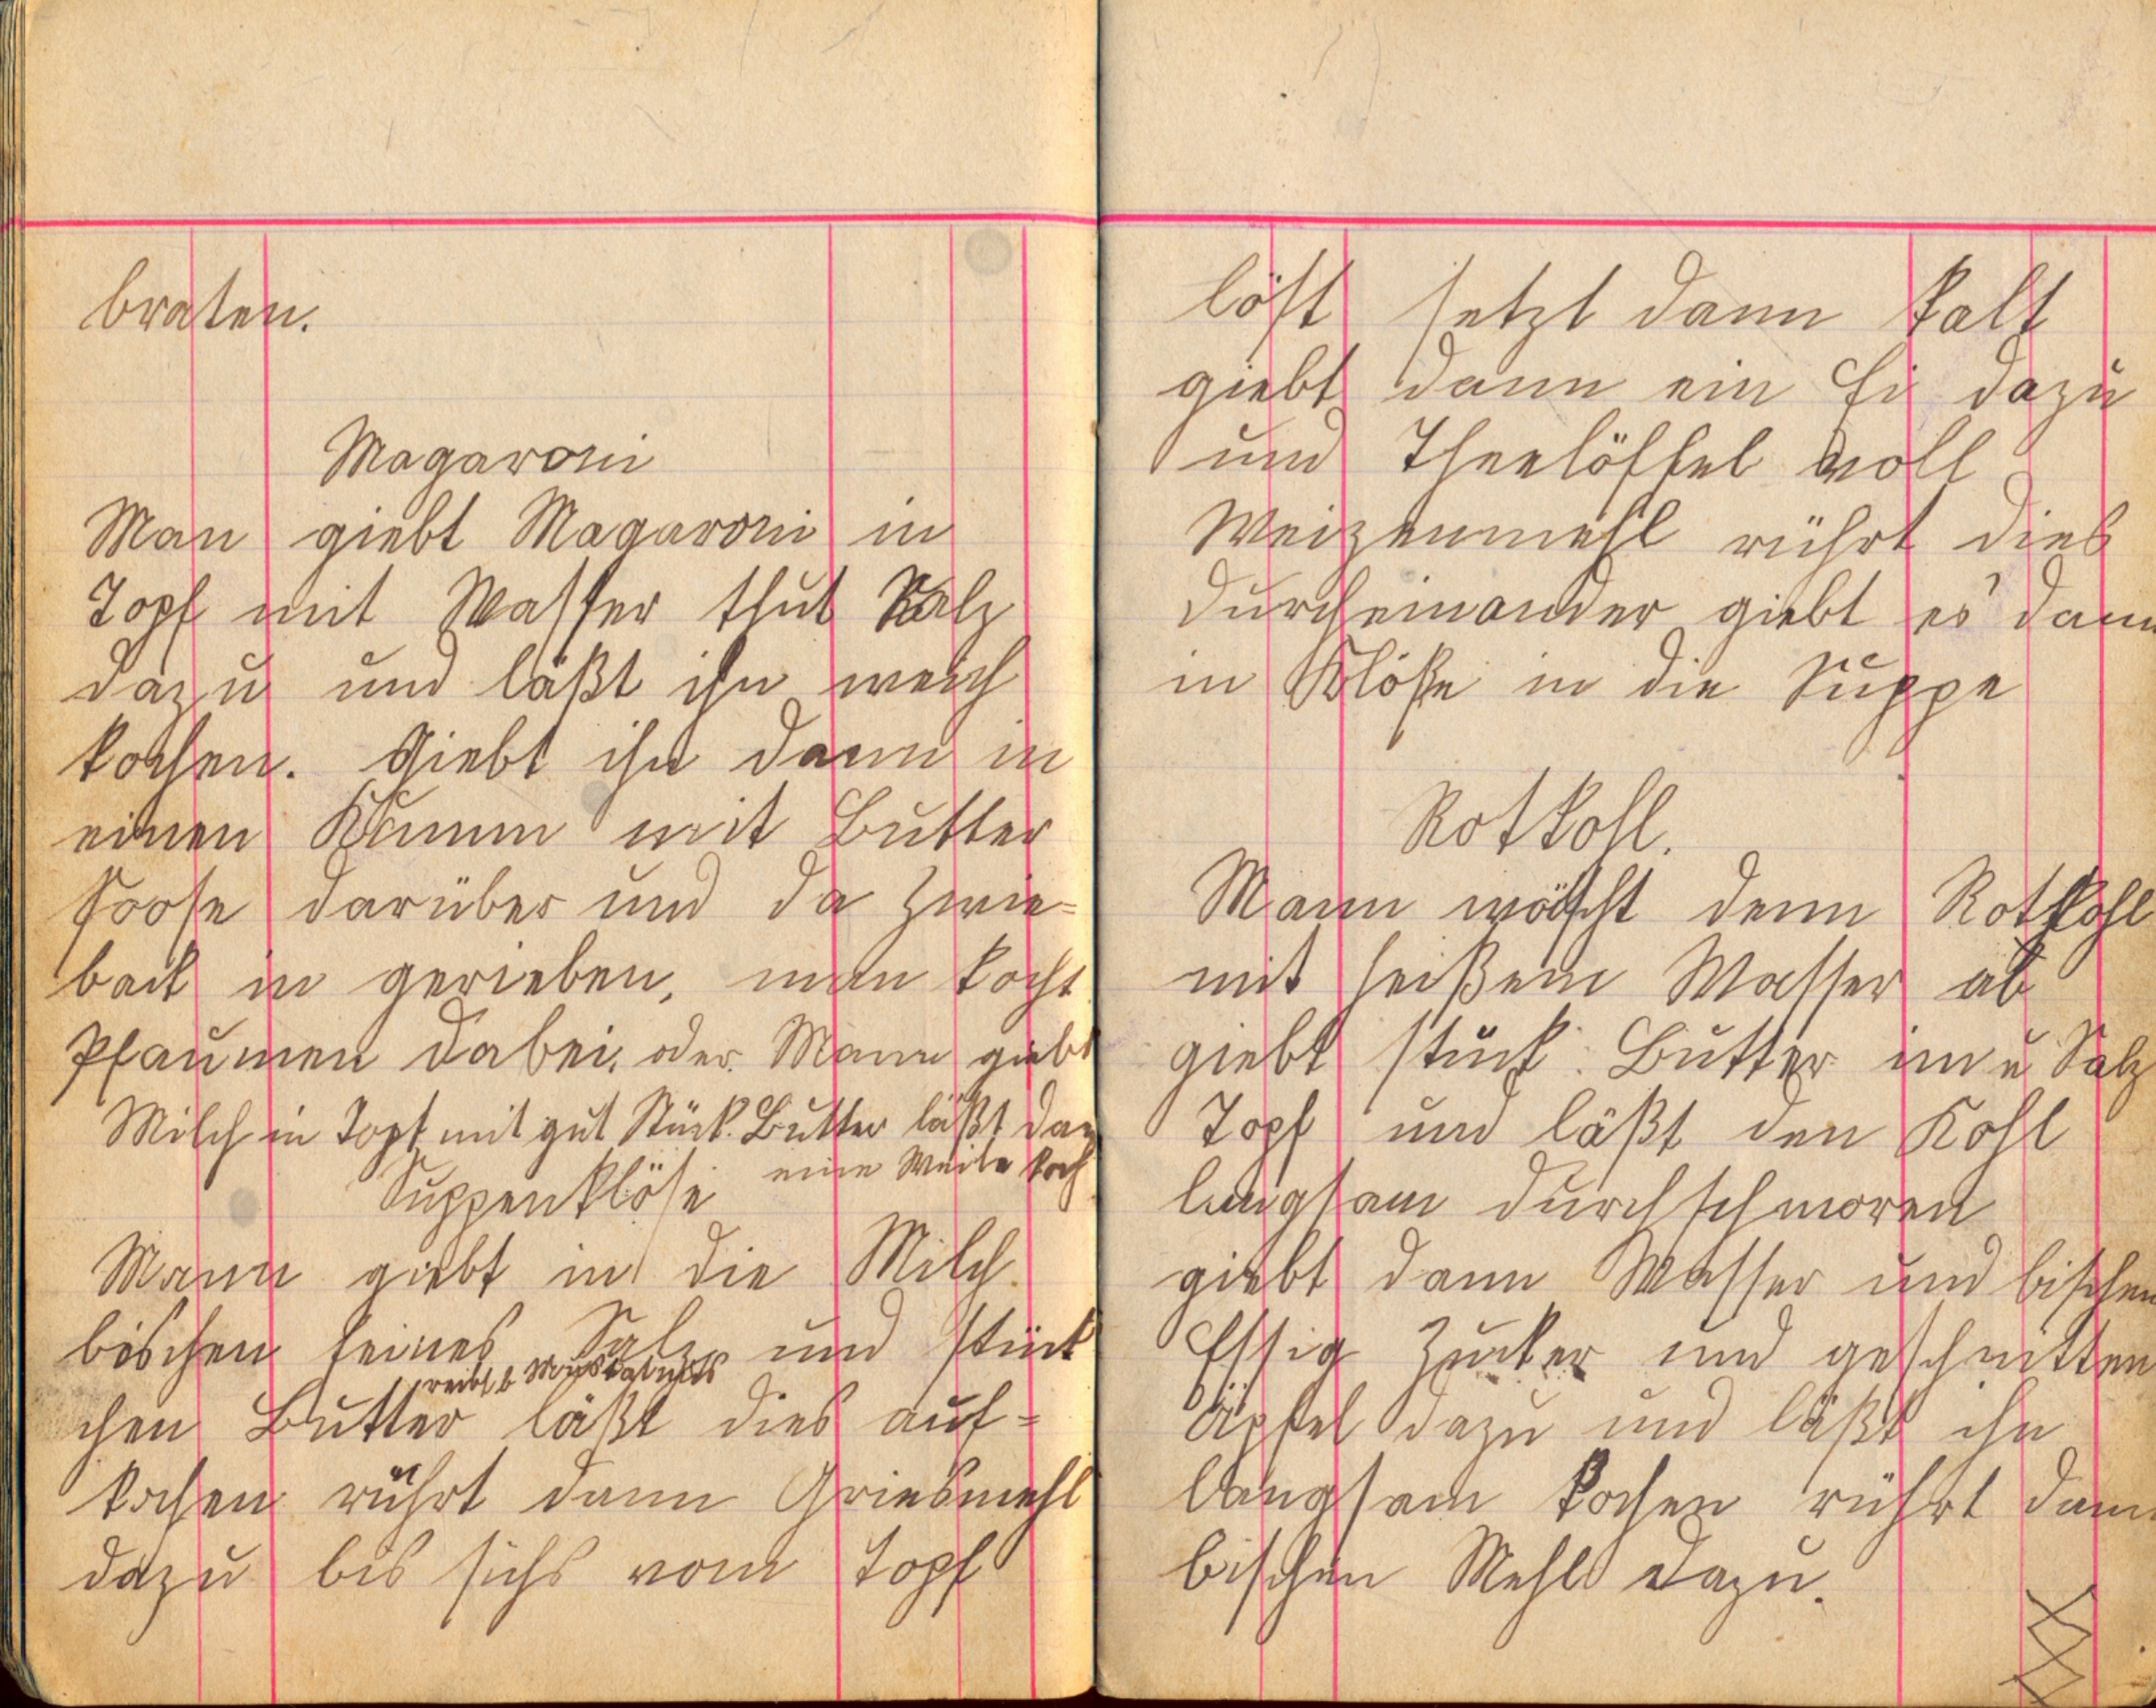 braten.
Magaroni
Man giebt Magaroni in
Topf mit Wasser thut Salz
dazu und läßt ihn weich
kochen. Giebt ihn dann in
einen mit Butter
Soose darüber und da Zwie=
back in gerieben, man kocht
Pflaumen dabei. oder. Mann giebt
Milch in Topf mit gut Stück. Butter läßt dan
eine Weile koch
Suppenklöse
Mann giebt in die Milch
bischen feines Salz und stück
reibt b Muskatnuss
chen Butter läßt dies auf=
kochen rührt dann Griesmehl
dazu bis sichs vom Topf
löst setzt dann kalt
giebt dann ein Ei dazu
und Theelöffel voll
Weizenmehl rührt dies
durcheinander giebt es dann
in Klöße in die Suppe
Rotkohl.
Mann wäscht denn Rotkohl
mit heißem Wasser ab
giebt stück Butter im u Salz
Topf und läßt den Kohl
langsam durchschmoren
giebt dann Wasser und bischen
Essig Zucker und geschnitten
Äpfel dazu und läßt ihn
langsam kochen rührt dann
bischen Mehl dazu.